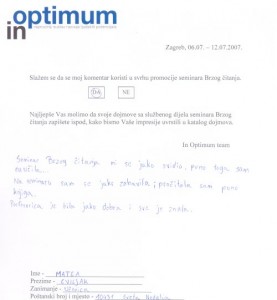 optimum
in
Zagreb, 06.07. – 12.07.2007.
Slažem se da se moj komentar koristi u svrhu promocije seminara Brzog čitanja.
DA
NE
Najljepše Vas molimo da svoje dojmove sa službenog dijela seminara Brzog
čitanja zapišete ispod, kako bismo Vaše impresije uvrstili u katalog dojmova.
In Optimum team
Seminar Brzog čitanja mi se jako svidio, puno toga sam
naučila.
Na seminaru sam se jako zabavila i pročitala sam puno
knjiga.
je bila jako dobra i sve je znala.
Ime - MATEA
Prezime -
Zanimanje - učenica
Poštanski broj i mjesto - Sveta Nedelja